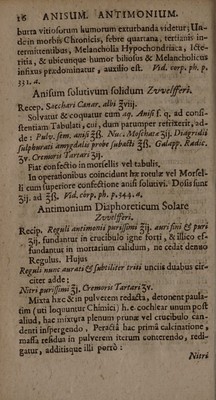 16 ANISUM. ANTIMONIUM.
burra vitiosorum humorum exturbanda videtur; Un-
de in morbis Chronicis, febre quartana, tertianis in-
termittentibus, Melancholia Hypochondriaca, Icte-
ritia, & ubicunque humor biliosus & Melancholicus
infixus prædominatur, auxilio est. Vid. corp. ph. p.
331. a.
Anisum solutivum solidum Zvvelfferi.
Recep. Sacchari Canar. albi ℥viij.
Solvatur & coquatur cum aq. Anisi f. q. ad con-
stentiam Tabulati, cui, dum parumper refrixerit, ad-
de: Pulv. sem. anis ℥ß. Nuc. Moschatæ ʒij. Diagridii
sulphurati amygdalis probe subacti ℥ß. Galapp. Radic.
Cremoris Tartari ℥ß.
Fiat confectio in morsellis vel tabulis.
In operationibus coincidunt hæ rotulæ vel Morsel-
li cum superiore confectione anisi solutivi. Dosis sunt
ʒij. ad ℥ß. Vid. corp. ph. p. 544. a.
Antimonium Diaphoreticum Solare
Zvvelfferi.
Recip. Reguli antimonii purissimi ℥ij. auri fini & puri
ʒij. fundantur in crucibulo igne forti, & illico ef-
fundantur in mortarium calidum, ne cedat denuo
Regulus. Hujus
Reguli nunc aurati & subtiliter triti unciis duabus cir-
citer adde:
Nitri purissimi Cremoris Tartari
Mixta hæc & in pulverem redacta, detonent paula-
tim (uti loquuntur Chimici) h. e. cochlear unum post
aliud, hac mixtura plenum prunæ vel crucibulo can-
denti inspergendo. Peracta hac prima calcinatione,
massa residua in pulverem iterum conterendo, redi-
gatur, additisque illi porro:
Nitri